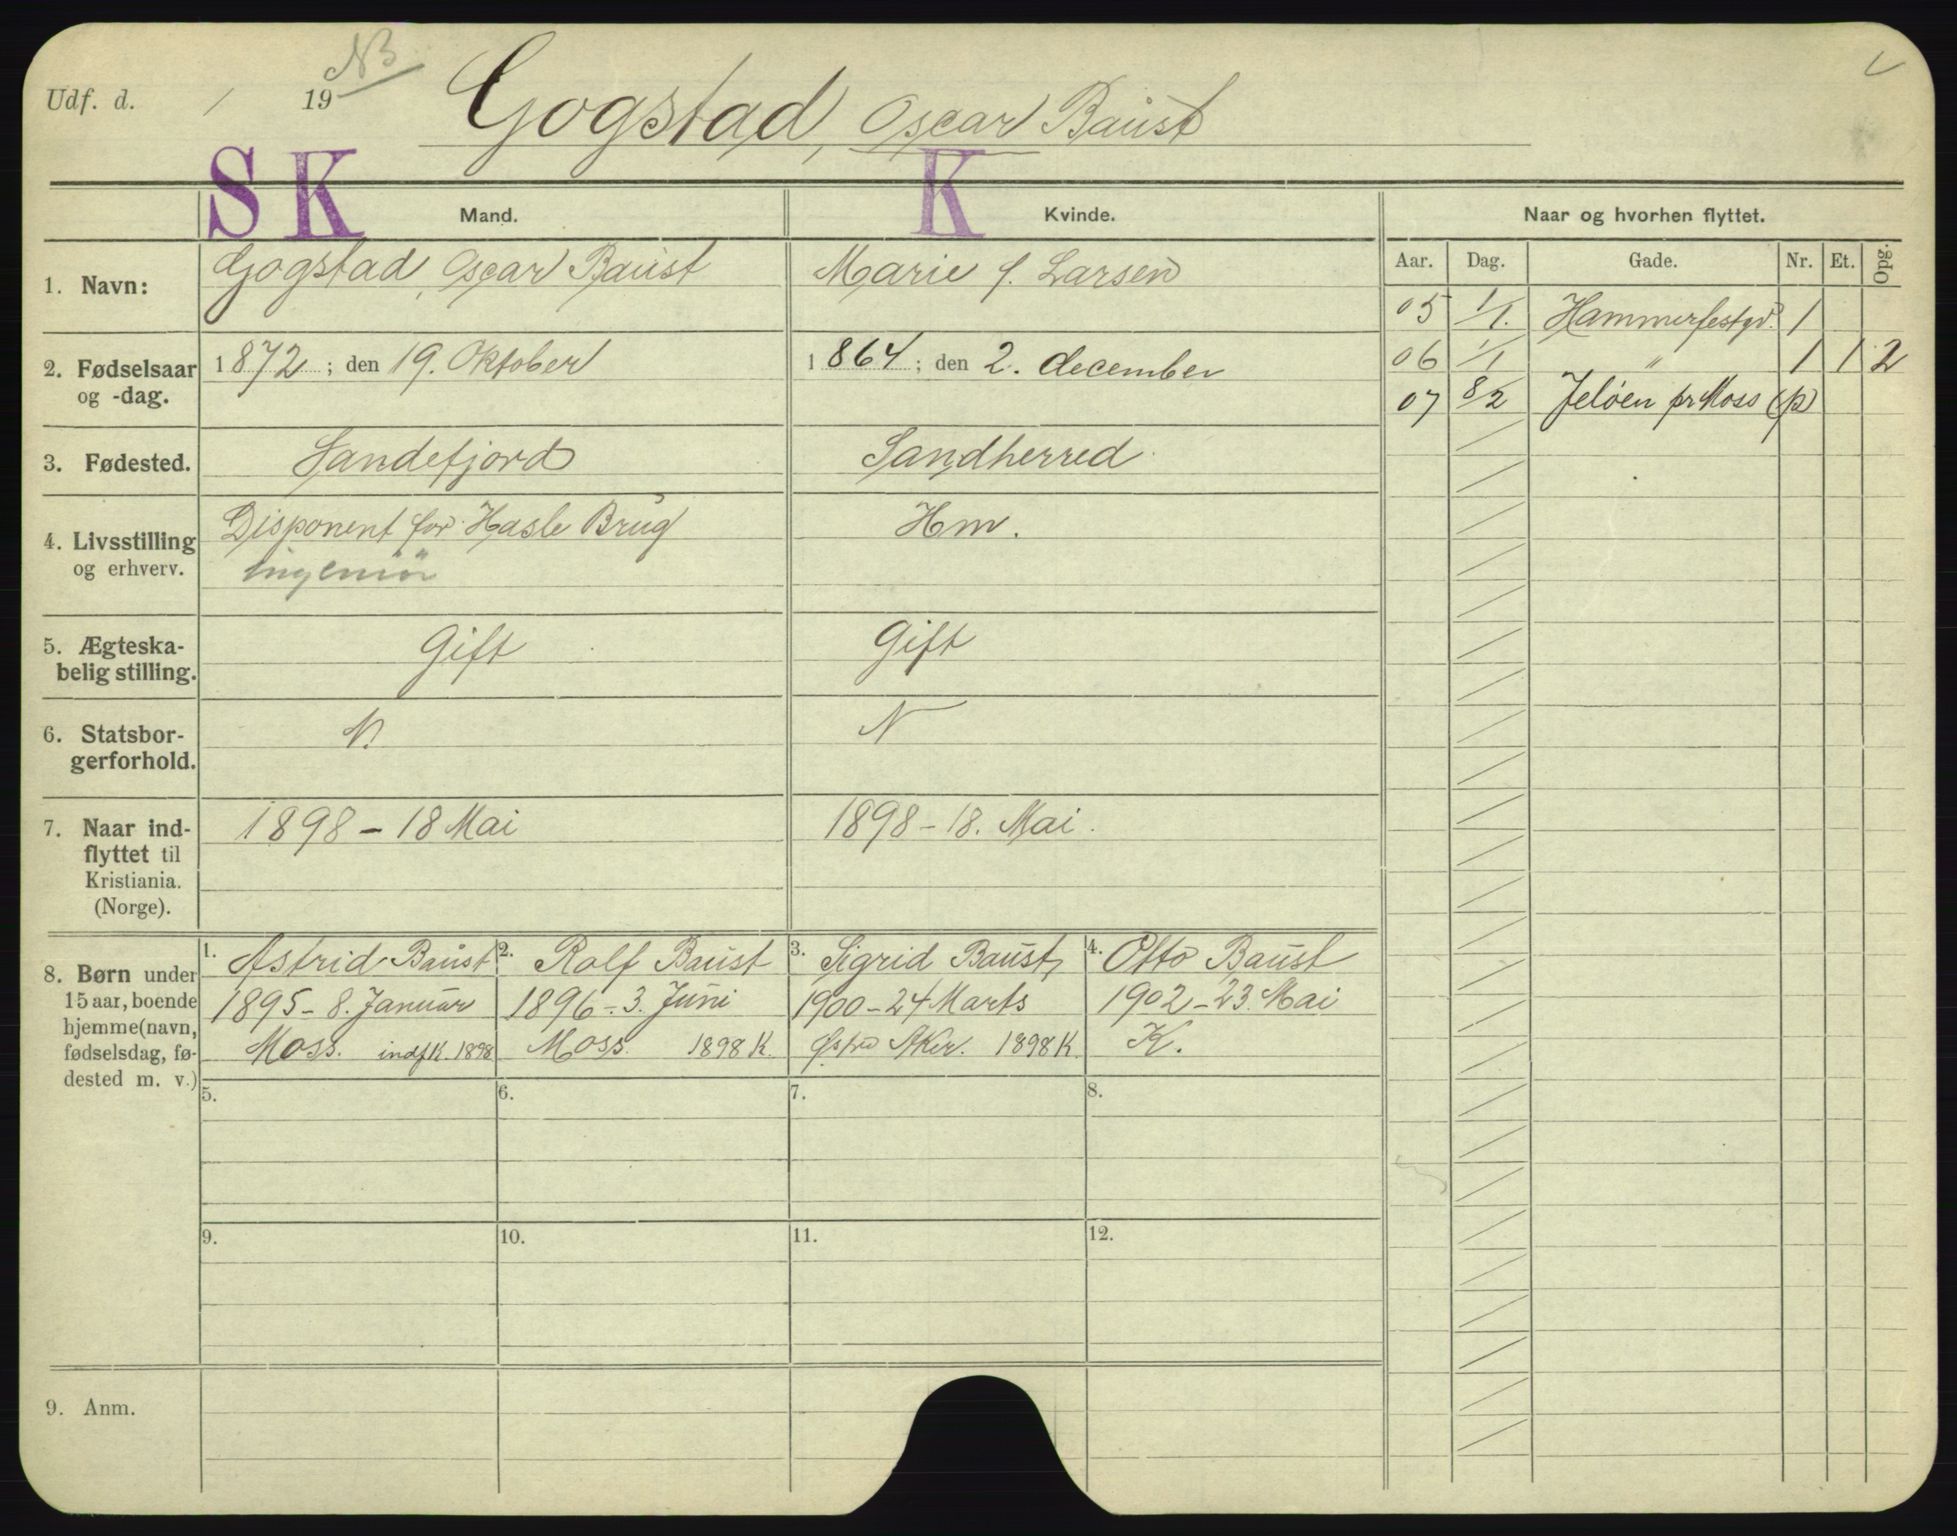 Udf. d. / 19 NB Gogstad, Oscar Baust
S K K
Mand. Kvinde. Naar og hvorhen flyttet.
Aar. Dag. Gade. Nr. Et. Opg.
1. Navn: Gogstad, Oscar Baust Marie f. Larsen
05 1/1. Hammerfestgd. 1
2. Fødselsaar og -dag. 1872; den 19. Oktober 1864; den 2. december
06 1/1 " 1 1 2
07 8/2 Jeløen pr Moss (p)
3. Fødested. Sandefjord Sandherred
4. Livsstilling og erhverv. Disponent for Hasle Brug Hm.
Ingeniør
5. Ægteska-
belig stilling. Gift Gift
6. Statsbor-
gerforhold. N. N
7. Naar ind-
flyttet til
Kristiania.
(Norge). 1898 - 18 Mai 1898 - 18. Mai.
8. Børn under
15 aar, boende
hjemme (navn,
fødselsdag, fø-
dested m. v.)
1. Astrid Baust
1895 - 8. Januar
Moss. indf K. 1898
2. Rolf Baust
1896 - 3. Juni
Moss. 1898 K.
3. Sigrid Baust,
1900 - 24 Marts
Aker. 1898 K.
4. Otto Baust
1902 - 23. Mai
K.
5. 6. 7. 8.
9. 10. 11. 12.
9. Anm.